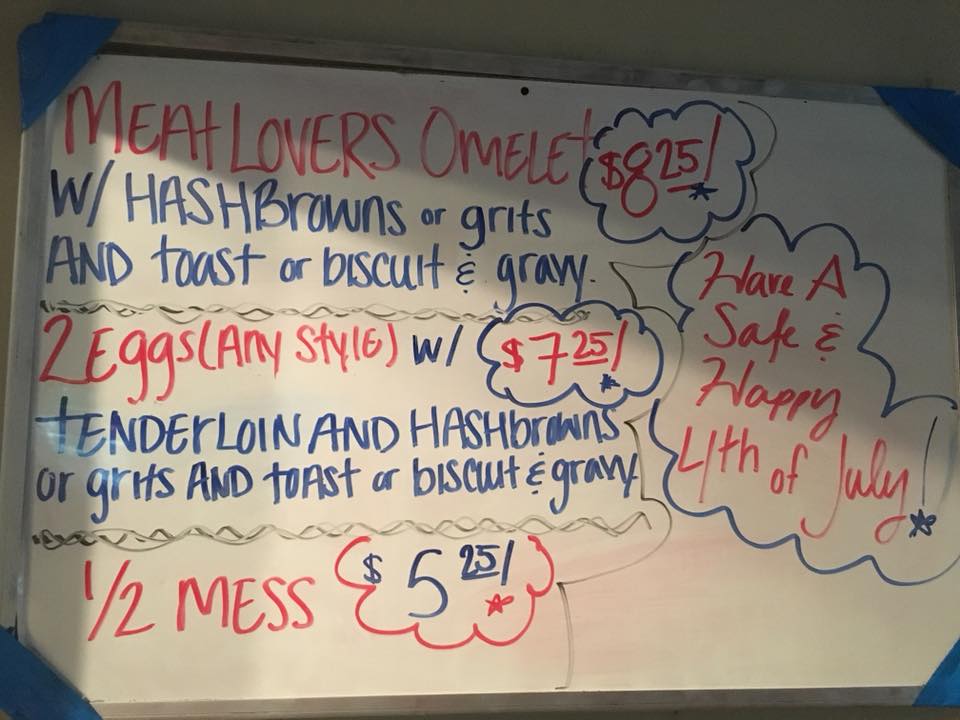 MEAt LOVERS OMELEt $8 25!
W/ HASHBrowns or grits
AND toast or biscuit & gravy.
2 Eggs (Any StyLE) w/ $7 25!
tENDErLOIN AND HASHbrowns
or grits AND toAst or biscuit & gravy
1/2 MESS $5 25!
Have A
Safe &
Happy
4th of July!